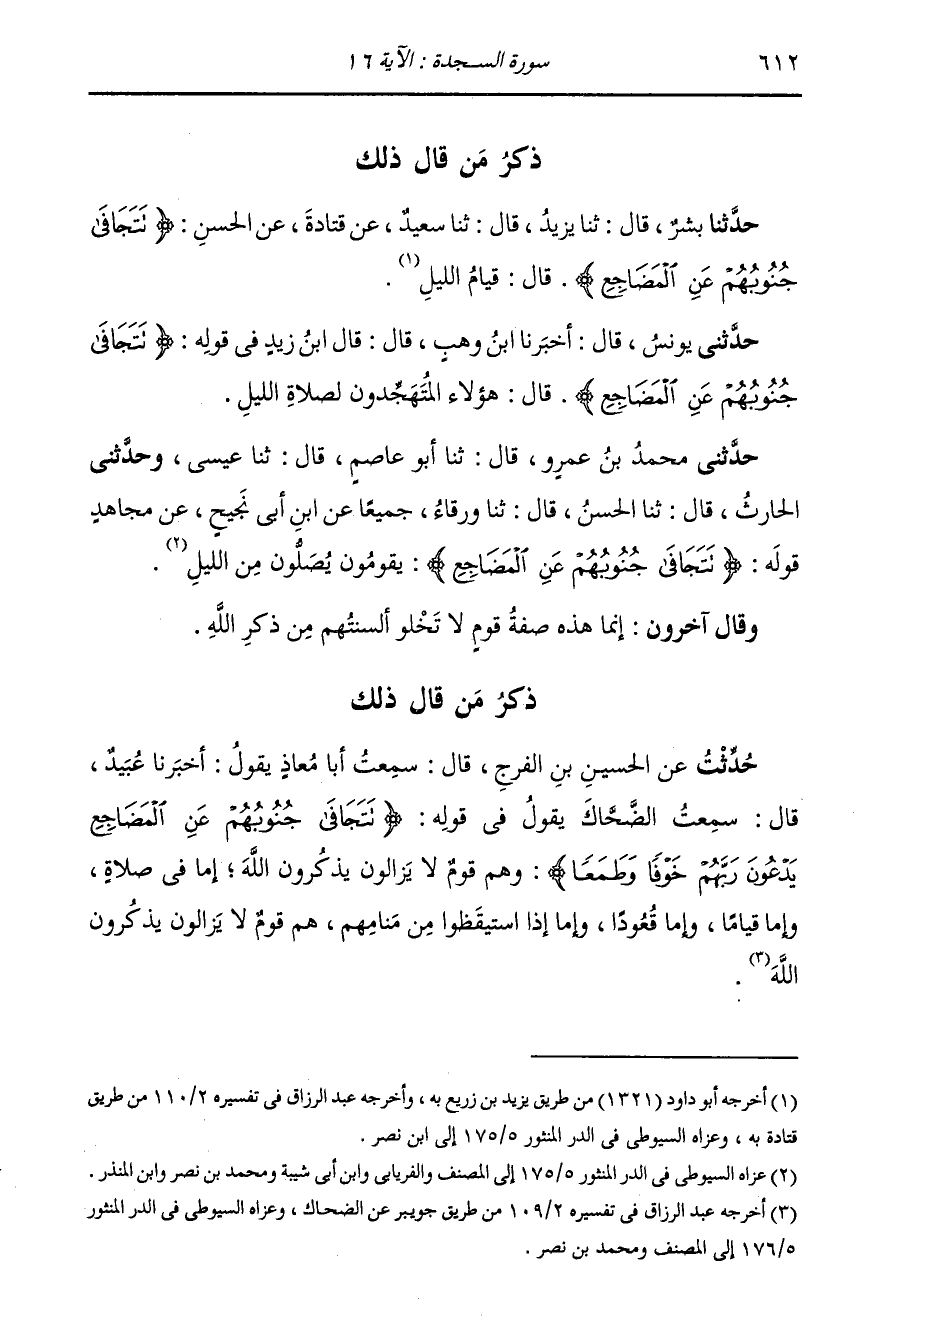 ٦١٢ سورة السجدة : الآية ١٦
ذكرُ مَن قال ذلك
حدَّثنا بشرٌ ، قال : ثنا يزيدُ ، قال : ثنا سعيدٌ ، عن قتادةَ ، عن الحسنِ : ﴿ نَتَجَافَىٰ
جُنُوبُهُمْ عَنِ ٱلْمَضَاجِعِ ﴾ . قال : قيامُ الليلِ(١) .
حدَّثنى يونسُ ، قال : أخبَرنا ابنُ وهبٍ ، قال : قال ابنُ زيدٍ فى قولِه : ﴿ نَتَجَافَىٰ
جُنُوبُهُمْ عَنِ ٱلْمَضَاجِعِ ﴾ . قال : هؤلاء المُتَهَجِّدون لصلاةِ الليلِ .
حدَّثنى محمدُ بنُ عمرٍو ، قال : ثنا أبو عاصمٍ ، قال : ثنا عيسى ، وحدَّثنى
الحارثُ ، قال : ثنا الحسنُ ، قال : ثنا ورقاءُ ، جميعًا عن ابنِ أبى نَجيحٍ ، عن مجاهدٍ
قولَه : ﴿ نَتَجَافَىٰ جُنُوبُهُمْ عَنِ ٱلْمَضَاجِعِ ﴾ : يقومُون يُصَلُّون مِن الليلِ(٢) .
وقال آخرون : إنما هذه صفةُ قومٍ لا تَخْلو ألسنتُهم مِن ذكرِ اللَّهِ .
ذكرُ مَن قال ذلك
حُدِّثْتُ عن الحسينِ بنِ الفرجِ ، قال : سمِعتُ أبا مُعاذٍ يقولُ : أخبَرنا عُبَيدٌ ،
قال : سمِعتُ الضَّحَّاكَ يقولُ فى قولِه : ﴿ نَتَجَافَىٰ جُنُوبُهُمْ عَنِ ٱلْمَضَاجِعِ
يَدْعُونَ رَبَّهُمْ خَوْفًا وَطَمَعًا ﴾ : وهم قومٌ لا يَزالون يذكُرون اللَّهَ ؛ إما فى صلاةٍ ،
وإما قيامًا ، وإما قُعُودًا ، وإما إذا استيقَظوا مِن مَنامِهم ، هم قومٌ لا يَزالون يذكُرون
اللَّهَ(٣) .
(١) أخرجه أبو داود (١٣٢١) من طريق يزيد بن زريع به ، وأخرجه عبد الرزاق فى تفسيره ١١٠/٢ من طريق
قتادة به ، وعزاه السيوطى فى الدر المنثور ١٧٥/٥ إلى ابن نصر .
(٢) عزاه السيوطى فى الدر المنثور ١٧٥/٥ إلى المصنف والفريابى وابن أبى شيبة ومحمد بن نصر وابن المنذر .
(٣) أخرجه عبد الرزاق فى تفسيره ١٠٩/٢ من طريق جويبر عن الضحاك ، وعزاه السيوطى فى الدر المنثور
١٧٦/٥ إلى المصنف ومحمد بن نصر .